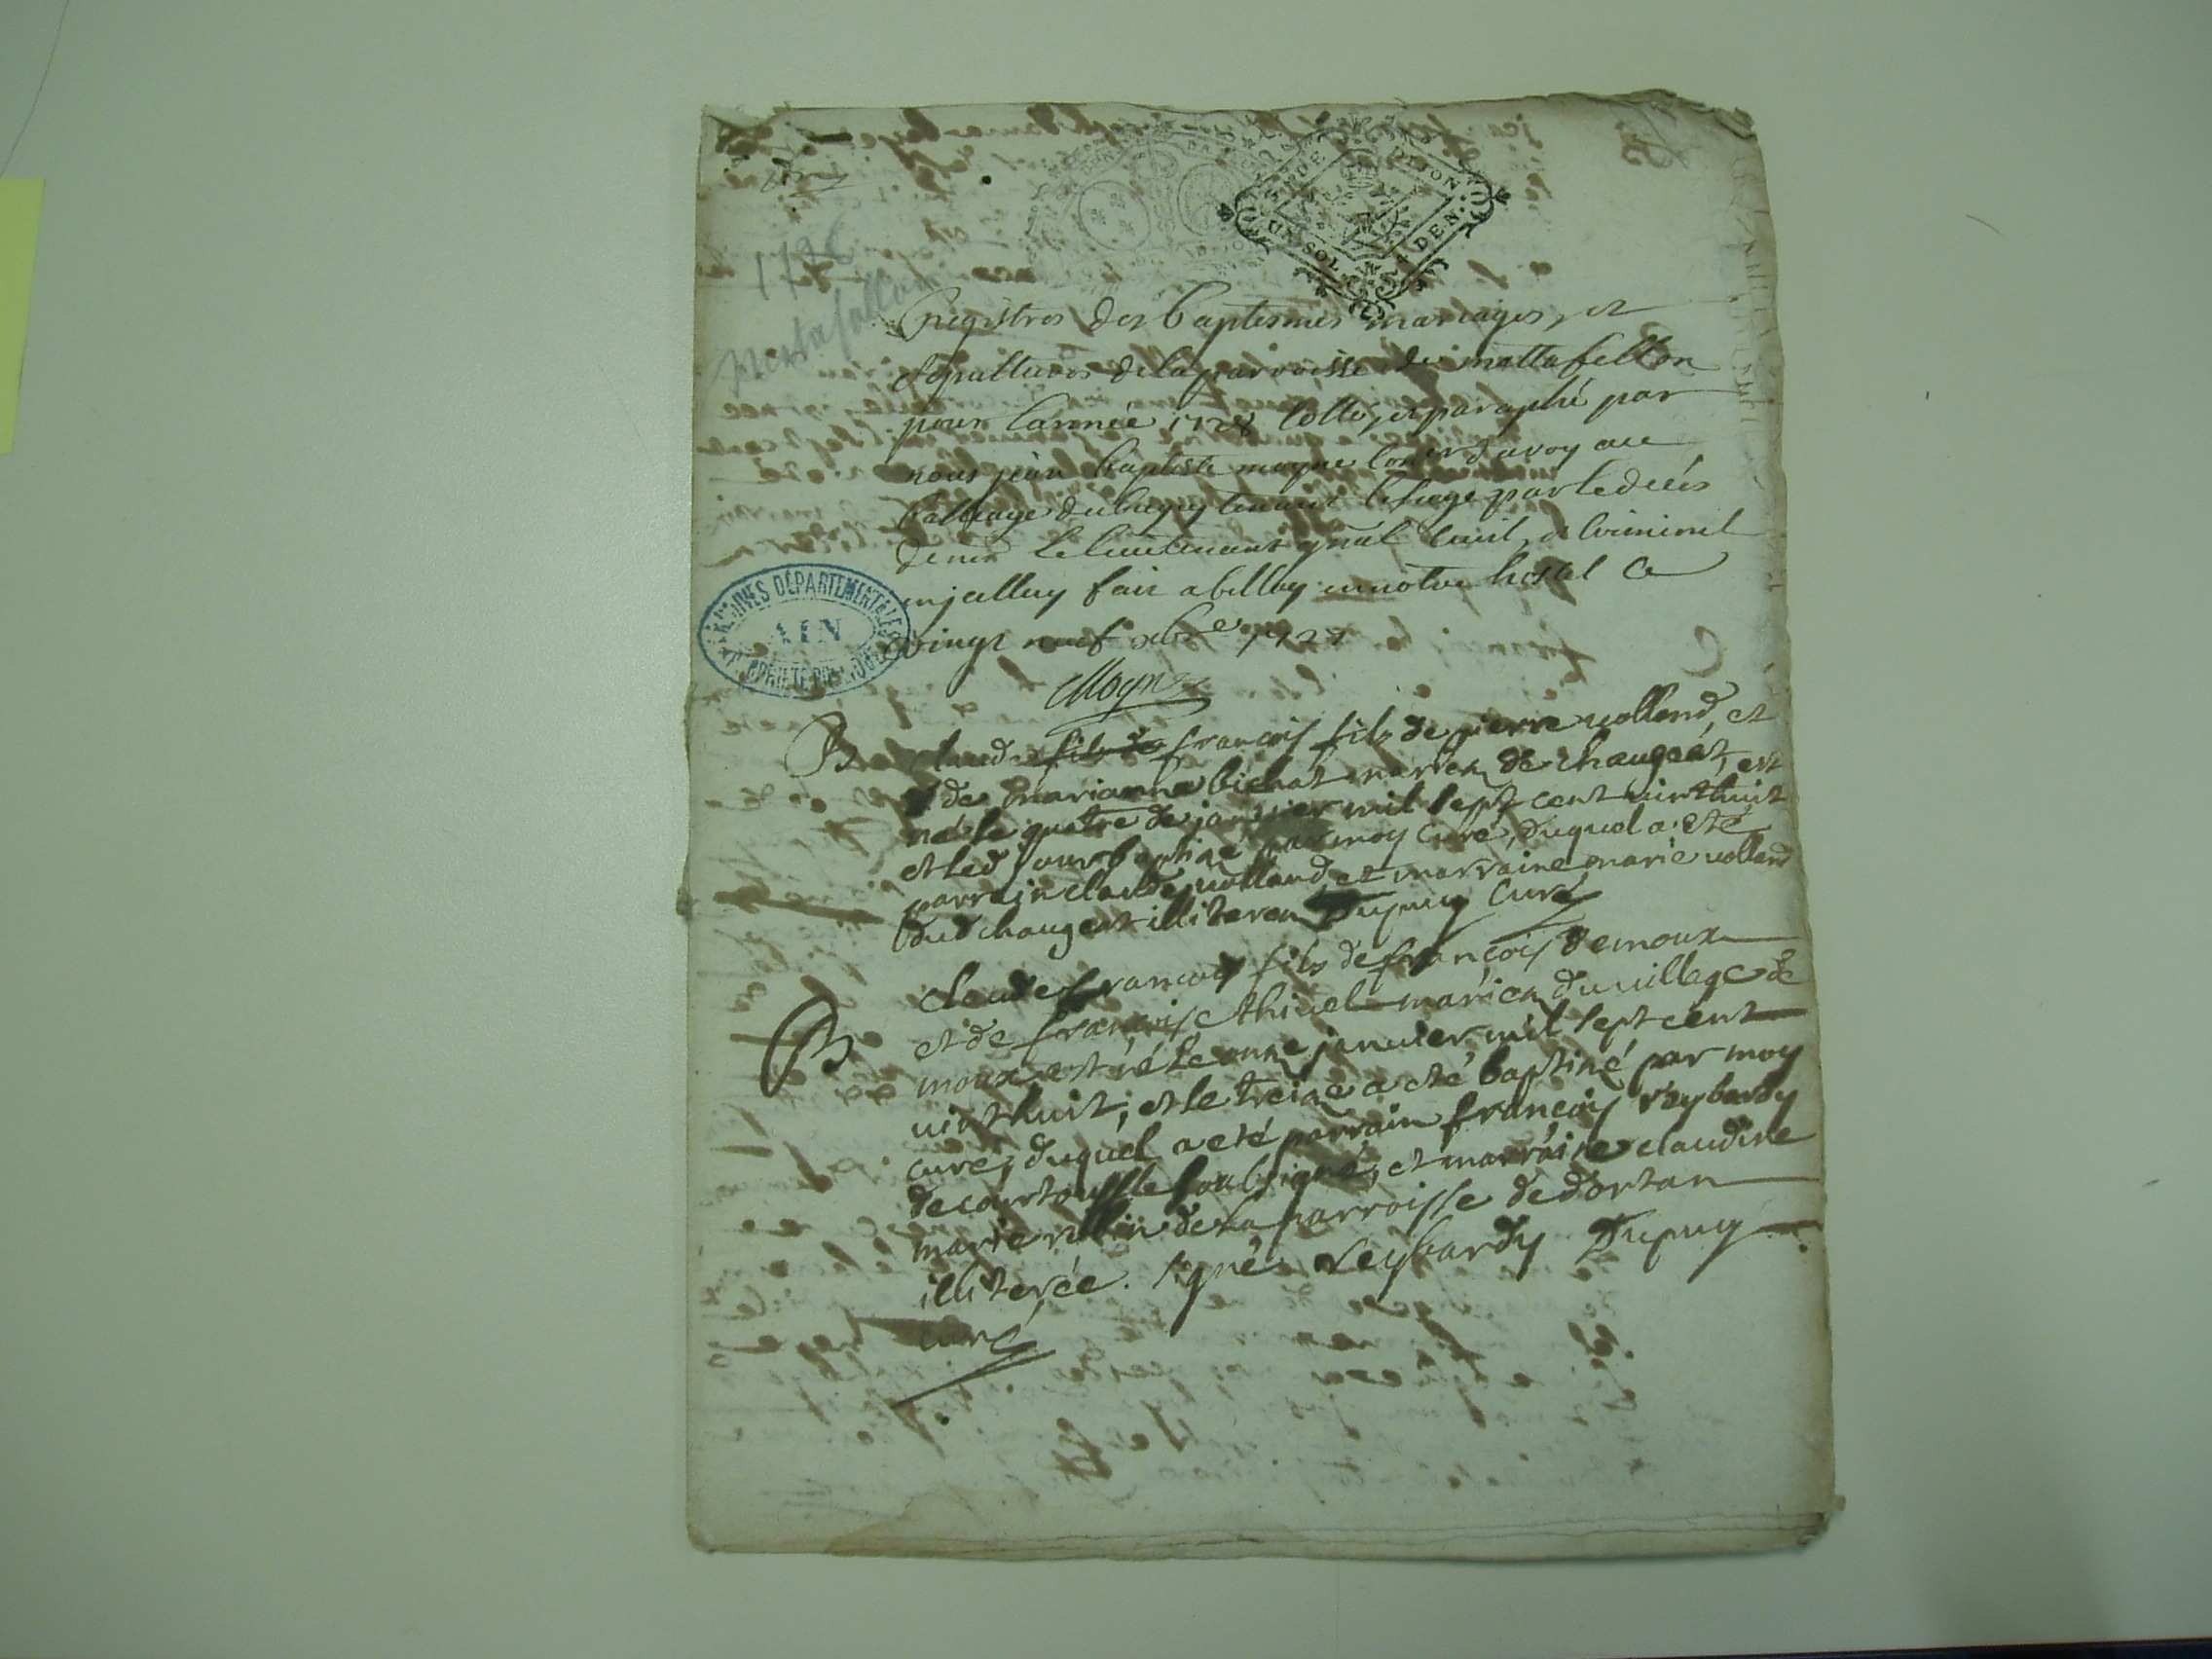 G. DE DIJON
UN SOL 4 DEN.
1728
Mattafellon
Registres des baptesmes mariages, et
sepultures de la parroisse de mattafellon
pour l'année 1728 cotté, et paraphé par
nous jean baptiste moyne Con.er du roy au
bailliage du bugey tenant le siege par le decés
de mr le lieutenant gnal civil, et criminel
en jcelluy fait a belley en notre hostel ce
vingt neuf xbre 1727
Moyne
ARCHIVES DÉPARTEMENTALES
AIN
PROPRIÉTÉ PUBLIQUE
B claude fils de francois fils de pierre volland, et
de marianne bichat mariez de changeat, est
né le quatre de janvier mil sept cent vint huit
et led jour baptizé par moy curé, duquel a été
parrain claude volland, et marraine marie volland
dud changeat illiterez Dupuy curé
B claude francois fils de françois demoux
et de françoise thivel mariez du village de
moux est né le onze janvier mil sept cent
vint huit, et le treize a été baptizé par moy
curé, duquel a été parrain françois reybardy
de courtouffle soubsigné, et marraine claudine
marie de la parroisse de dortan
illiterée. signé reybardy Dupuy
curé